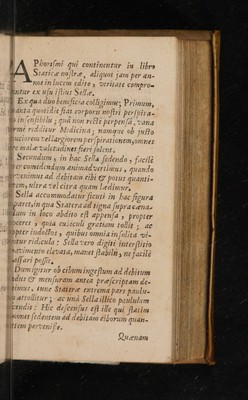 APhorismi qui continentur in libro
Staticæ nostræ, aliquot jam per an-
nos in lucem edito, veritate compro-
antur ex usu istius Sellæ.
Ex qua duo beneficia colligimus; Primum,
quanta quotidie fiat corporis nostri perspira-
io insensibilis; quâ non rectè perpensâ, vana
ermè redditur Medicina; namque ob justo
auciorem vel largiorem perspirationem, omnes
è malæ valetudines fieri solent.
Secundum, in hac Sella sedendo, facilè
comedendum animadvertimus, quando
rvenimus ad debitam cibi & potus quanti-
tem, ultra vel citra quam lædimur.
Sella accommodatur sicuti in hac figura
paret, in qua Statera ad tigna supra cæna-
lum in loco abdito est appensa, propter
oceres, quia cœteris gratiam tollit; ac
opter indoctos, quibus omnia insolita vi-
ntur ridicula: Sella vero digiti interstitio
avimento elevata, manet stabilis, ne facilè
assari possit.
Dum igitur ob cibum ingestum ad debitum
dus & mensuram antea præscriptam de-
nimus, tunc Stateræ extrema pars paulu-
attollitur; ac unà Sella illico paululum
cendit: Hic descensus est ille qui statim
monet sedentem ad debitam ciborum quan-
ttem pervenisse.
Quænam